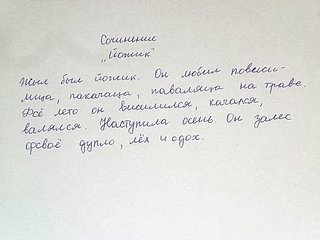 Сочинение
„Йожик"
Жыл был йожик. Он любил повесили-
мица, пакачаца, павалятца на траве.
Фсё лето он висилился, качался,
валялся. Наступила осень. Он залес
фсваё дупло, лёх и сдох.